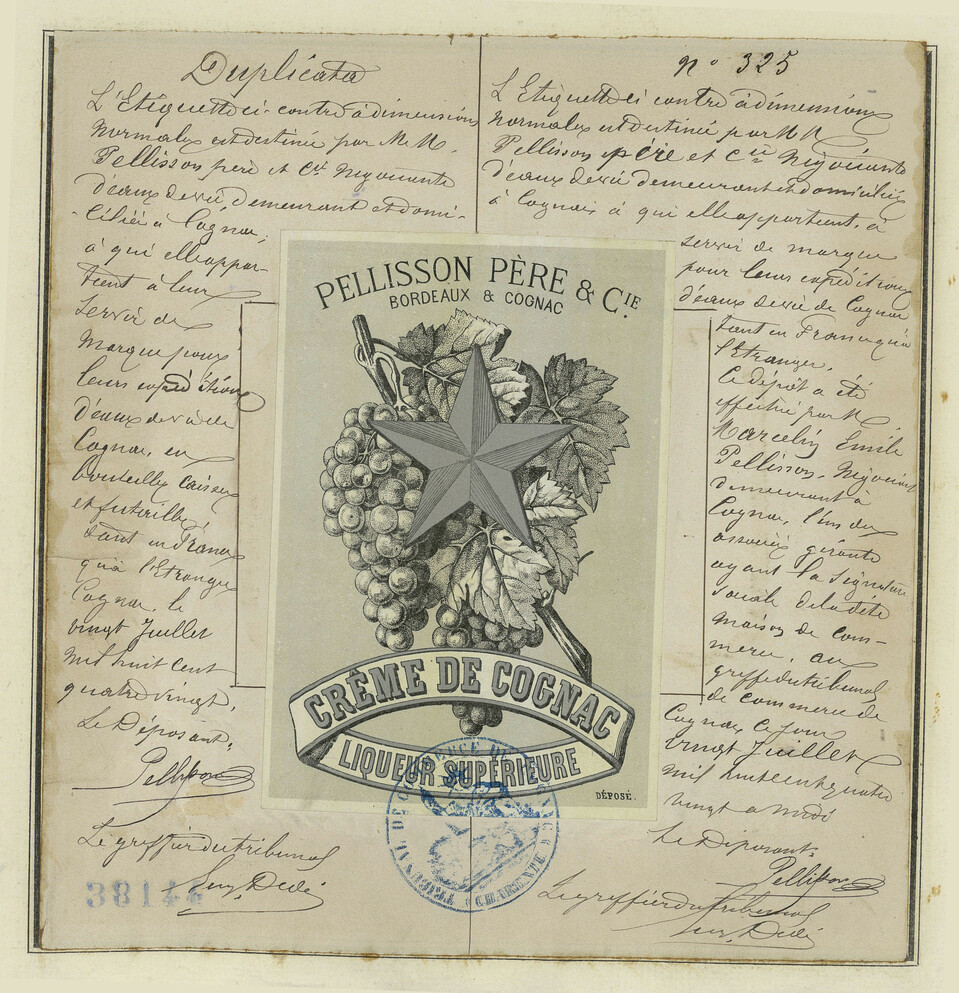 Duplicata
L'Etiquette ci-contre à dimensions
normales est destinée par M.M.
Pellisson père et Cie Négociants
d'eaux de vie, demeurant et domi-
-ciliés à Cognac,
à qui elle appar-
tient à leur
servir de
marque pour
leurs expéditions
d'eaux de vie de
Cognac, en
bouteilles caisses
et futailles,
tant en France
qu'à l'Etranger
Cognac, le
vingt Juillet
mil huit cent
quatre vingt.
Le Déposant,
Pellisson
Le greffier du tribunal
38144
n° 325
L'Etiquette ci contre à dimensions
normales est destinée par M M
Pellisson père et Cie Négociants
d'eaux de vie demeurant et domiciliés
à Cognac à qui elle appartient, à
servir de marque
pour leurs expéditions
d'eaux de vie de Cognac
tant en France qu'à
l'Etranger.
Le dépôt a été
effectué par M
Marcelin Emile
Pellisson, Négociant
demeurant à
Cognac, l'un des
associés gérants
ayant la signature
sociale de la dite
maison de com-
merce, au
greffe du tribunal
de commerce de
Cognac ce jour
vingt Juillet
mil huit cent quatre
vingt a midi
Le Déposant.
Pellisson
Le greffier du tribunal
PELLISSON PÈRE & CIE.
BORDEAUX & COGNAC
CRÈME DE COGNAC
LIQUEUR SUPÉRIEURE
DÉPOSÉ.
TRIBUNAL DE COMMERCE DE COGNAC
CHARENTE